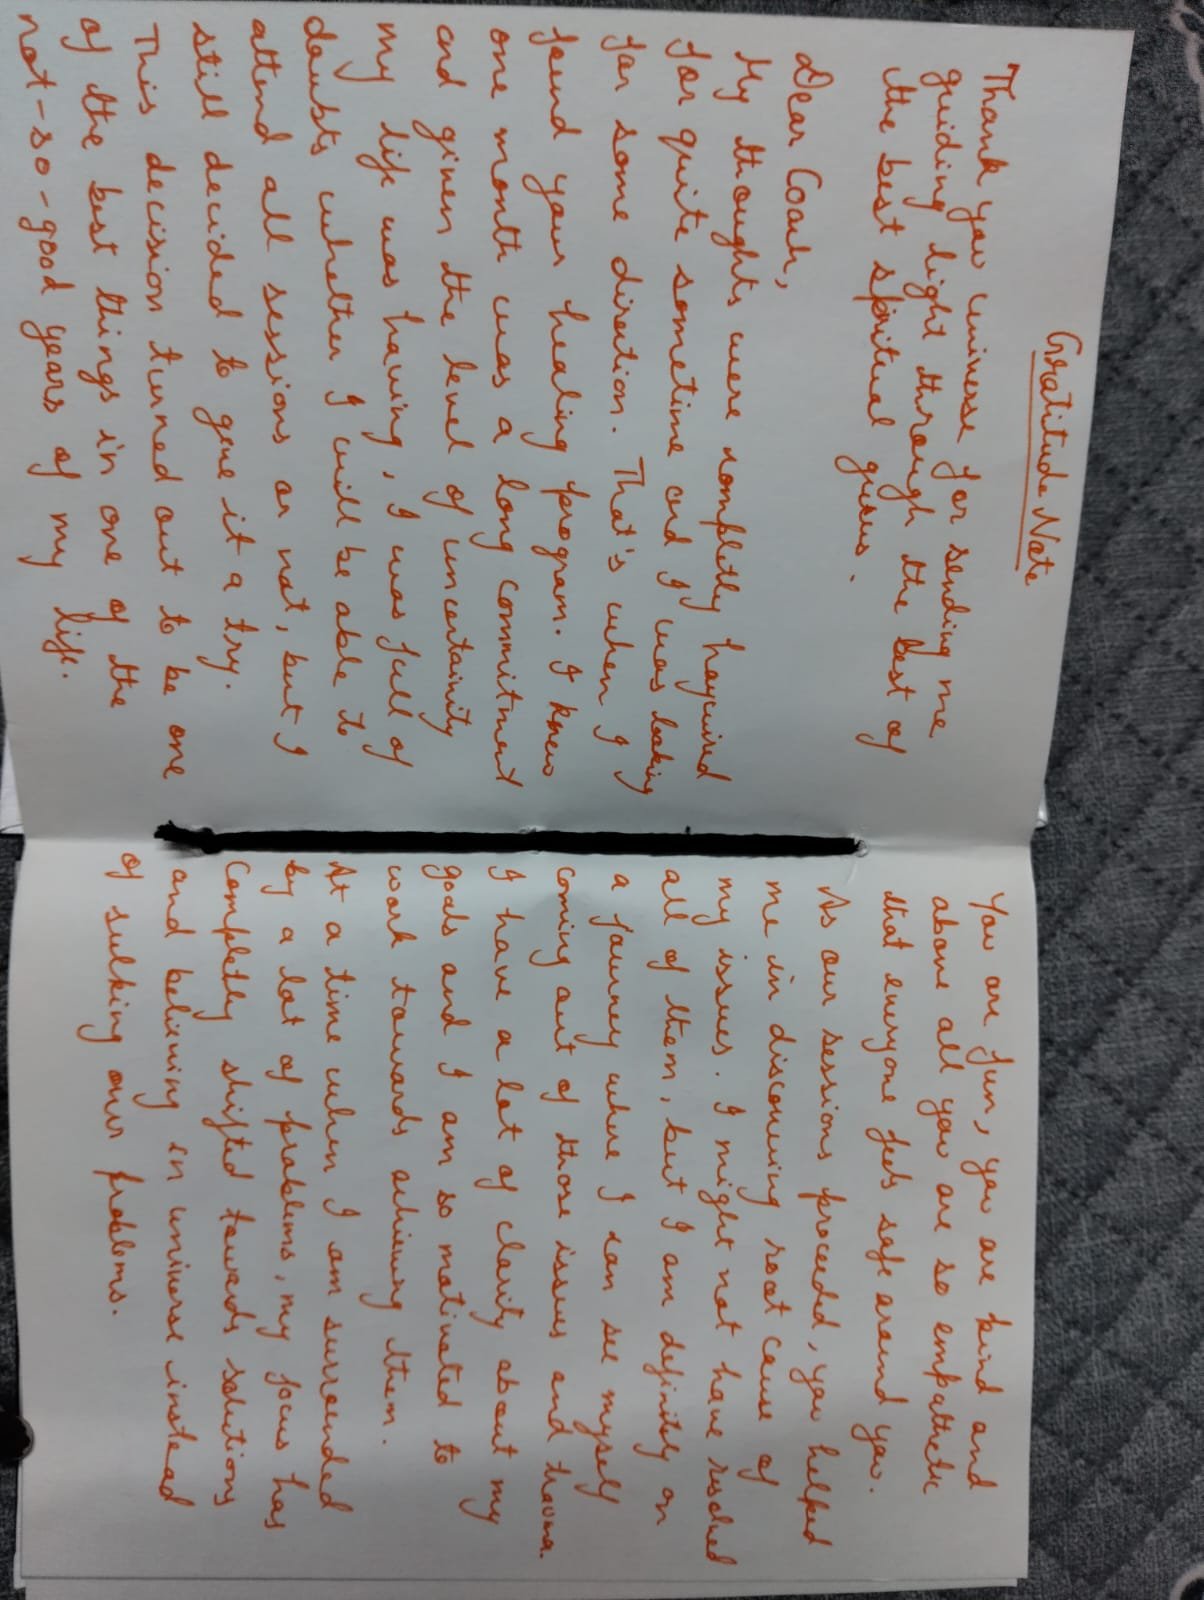 Gratitude Note
Thank you universe for sending me
guiding light through the best of
the best spiritual gurus.
Dear Coach,
My thoughts were completly haywired
for quite sometime and I was looking
for some direction. That's when I
found your healing program. I knew
one month was a long commitment
and given the level of uncertainity
my life was having, I was full of
doubts whether I will be able to
attend all sessions or not, but I
still decided to give it a try.
This decision turned out to be one
of the best things in one of the
not-so-good years of my life.
You are fun, you are kind and
above all you are so empathetic
that everyone feels safe around you.
As our sessions proceeded, you helped
me in discovering root cause of
my issues. I might not have resolved
all of them, but I am definitely on
a journey where I can see myself
coming out of those issues and trauma.
I have a lot of clarity about my
goals and I am so motivated to
work towards achieving them.
At a time when I am surrounded
by a lot of problems, my focus has
completly shifted towards solutions
and beliving in universe instead
of sulking our problems.